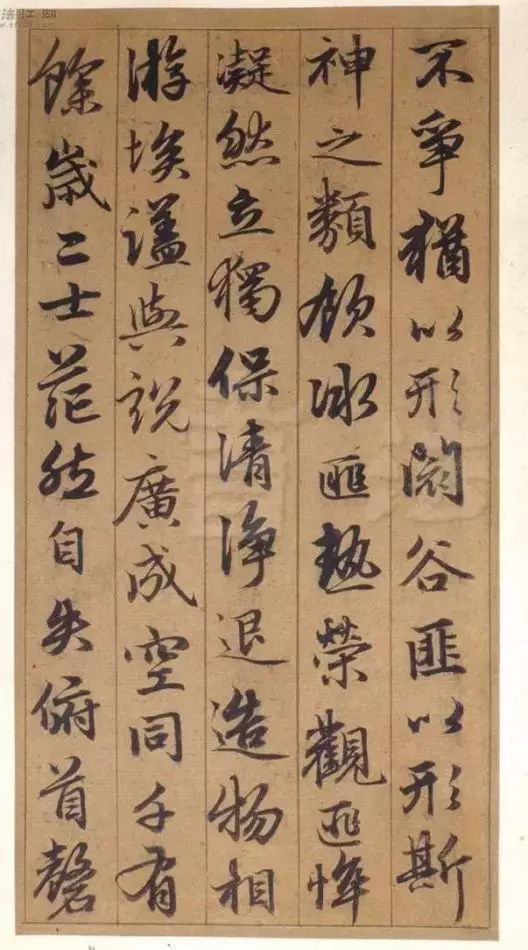 不爭猶以形閟谷匪以形斯
神之類頎冰匪熱榮觀匪悴
凝然立獨保清淨退造物相
游埃𡏖與說廣成空同千有
餘歲二士茫然自失俯首磬